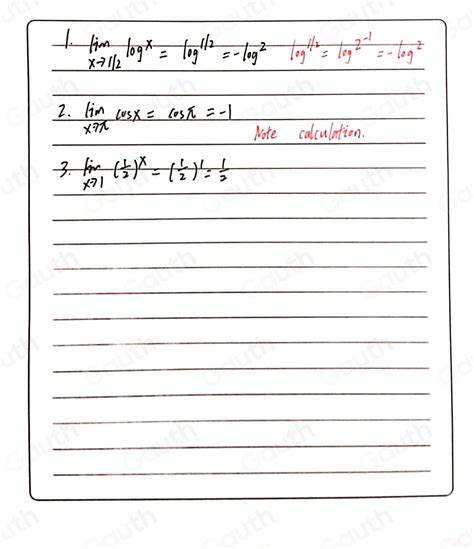 1. lim x→1/2 log^x = log^1/2 = -log^2 log^1/2 = log2^-1 = -log^2
2. lim x→π cosx = cosπ = -1
Note calculation.
3. lim x→1 (1/2)^x = (1/2)^1 = 1/2
Gauth